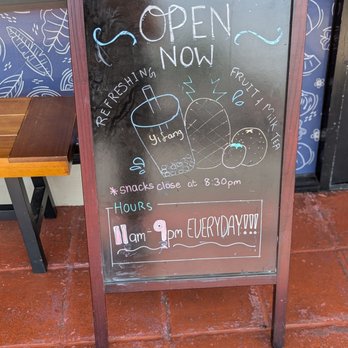 OPEN
NOW
REFRESHING
FRUIT & MILK TEA
Yifang
*SNACKS CLOSE AT 8:30PM
HOURS
11am-9pm EVERYDAY!!!